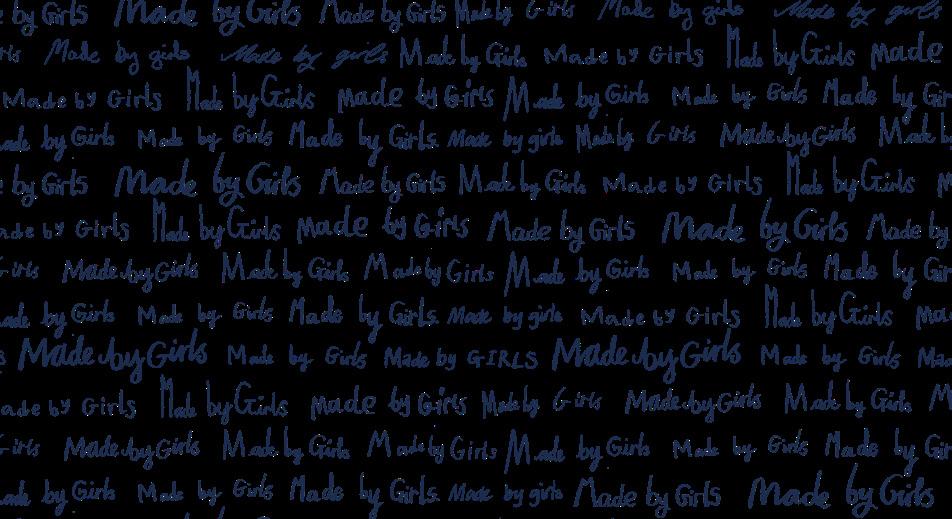 by Girls Made by Girls Made by Girls Made by Girls Made by girls Made by girls
Made by girls Made by girls Made by Girls Made by Girls Made by Girls made
Made by Girls Made by Girls made by Girls Made by Girls Made by Girls Made by
by Girls Made by Girls Made by Girls. Made by girls Made by Girls Made by Girls Made
by Girls Made by Girls Made by Girls Made by Girls Made by Girls Made by Girls
by Girls Made by Girls made by Girls Made by Girls Made by Girls Made by
Girls Made by Girls Made by Girls Made by Girls Made by Girls Made by Girls Made by
by Girls Made by Girls Made by Girls. Made by girls Made by Girls Made by Girls
Made by Girls Made by Girls Made by GIRLS Made by Girls Made by Girls
by Girls Made by Girls made by Girls Made by Girls Made by Girls Made by Girls
Girls Made by Girls Made by Girls Made by Girls Made by Girls Made by Girls Made by
by Girls Made by Girls Made by Girls. Made by girls Made by Girls Made by Girls